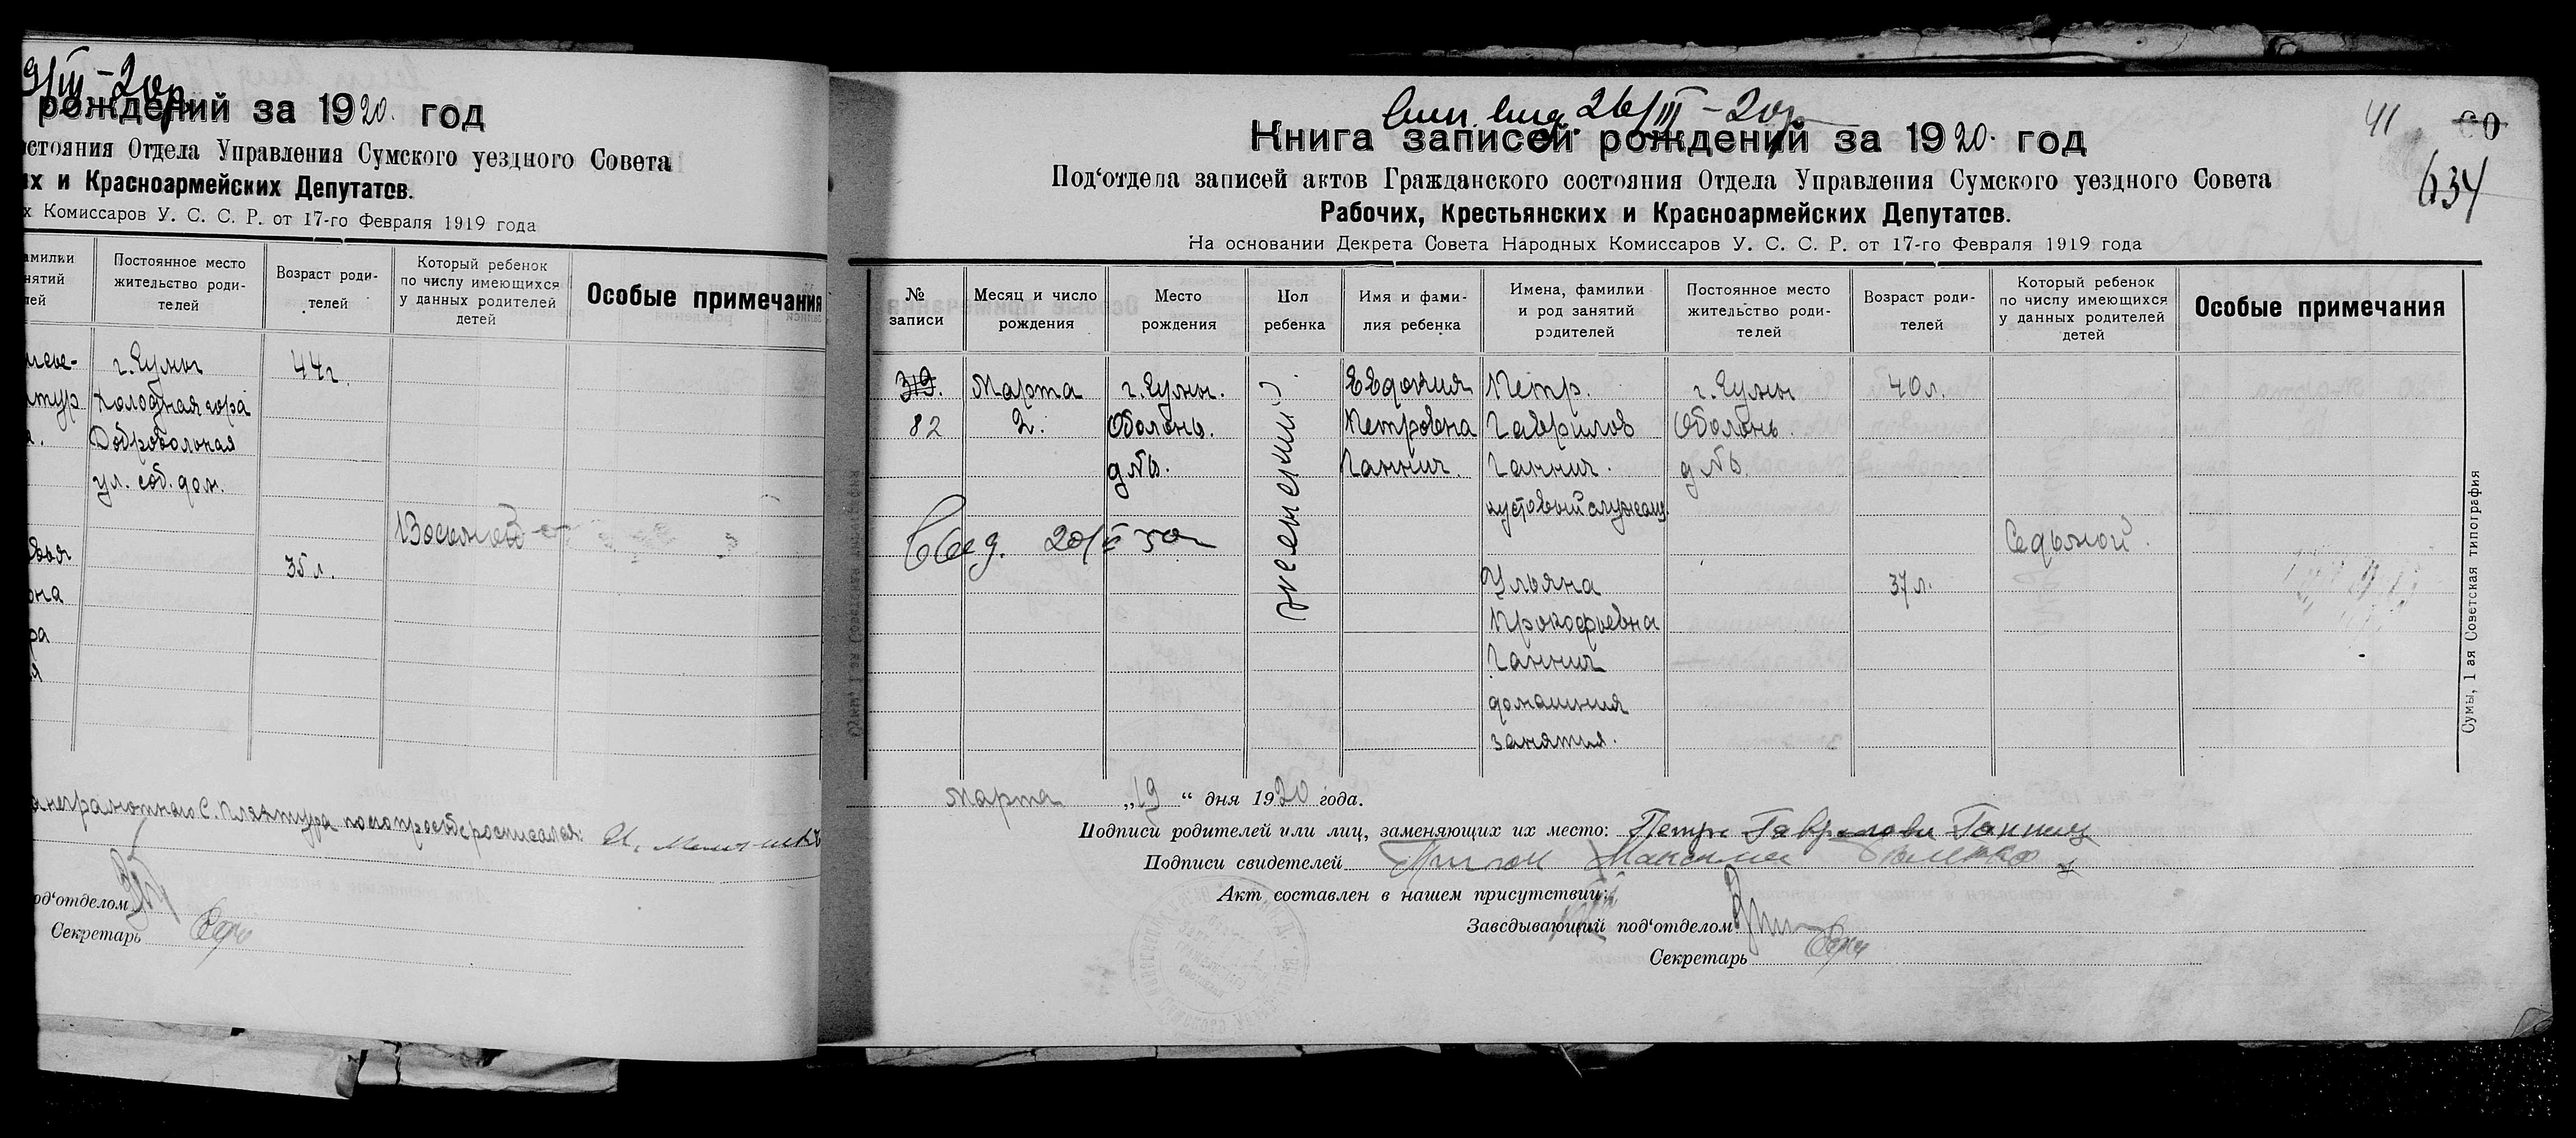 9/III-20г.
рождений за 1920. год
стояния Отдела Управления Сумского уездного Совета
их и Красноармейских Депутатов.
х Комиссаров У. С. С. Р. от 17-го Февраля 1919 года
амилии
нятий
лей
Постоянное место
жительство роди-
телей
Возраст роди-
телей
Который ребенок
по числу имеющихся
у данных родителей
детей
Особые примечания
г. Сумы
Холодная гора
Добровольная
ул. соб. дом.
44г.
35 л.
Восьмой
вья
она
ра
я
неграмотного С. Пляктура по его просьбе росписался:
од'отделом
Секретарь
26/III-20г.
Книга записей рождений за 1920. год
Под'отдела записей актов Гражданского состояния Отдела Управления Сумского уездного Совета
Рабочих, Крестьянских и Красноармейских Депутатов.
На основании Декрета Совета Народных Комиссаров У. С. С. Р. от 17-го Февраля 1919 года
41
634
№
записи
Месяц и число
рождения
Место
рождения
Пол
ребенка
Имя и фами-
лия ребенка
Имена, фамилии
и род занятий
родителей
Постоянное место
жительство роди-
телей
Возраст роди-
телей
Который ребенок
по числу имеющихся
у данных родителей
детей
Особые примечания
319.
82
Марта
2.
г. Сумы.
Оболонь.
д №
женский
Евдокия
Петровна
Ганнич.
Петр.
Гаврилов
Ганнич.
служащ.
Ульяна
Прокофьевна
Ганнич
домашния
занятия.
г. Сумы
Оболонь.
д №
40 л.
37 л.
Седьмой.
Свид. 20/II
Марта „19“ дня 1920 года.
Подписи родителей или лиц, заменяющих их место: Петр Гаврилович Ганнич
Подписи свидетелей
Акт составлен в нашем присутствии:
Заведывающий под'отделом
Секретарь
Сумы, 1 ая Советская типография